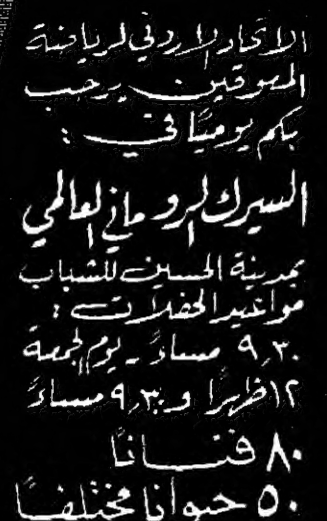 الاتحاد الاردني لرياضة
المعوقين يرحب
بكم يوميًا في :
السيرك الروماني العالمي
بمدينة الحسين للشباب
مواعيد الحفلات :
٩,٣٠ مساءً - يوم الجمعة
١٢ ظهرًا و ٩,٣٠ مساءً
٨٠ فنانًا
٥٠ حيوانا مختلفًا